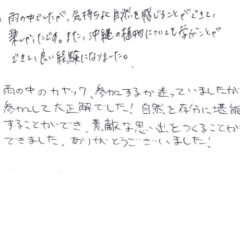 雨の中でしたが、気持ちよく自然を感じることができて
楽しかったです。また、沖縄の植物についても学ぶことが
できて良い経験になりました。
雨の中のカヤック、参加するか迷っていましたが
参加して大正解でした！自然を存分に堪能
することができ、素敵な思い出をつくることが
できました。ありがとうございました！